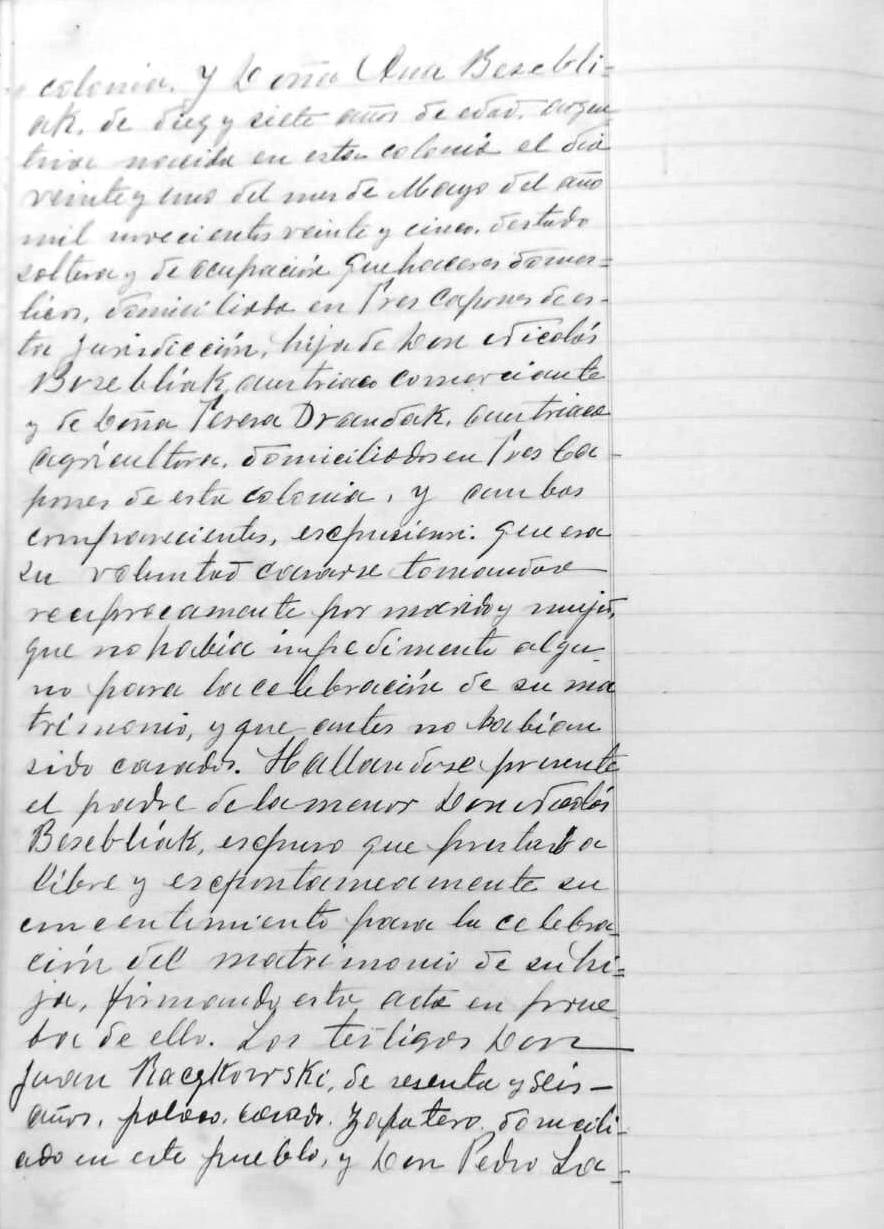 colonia. y Doña Ana Besebli=
ak. de diez y siete años de edad. argen
tina nacida en esta colonia el dia
veinte y uno del mes de Mayo del año
mil novecientos veinte y cinco. d'estado
soltera y de ocupación quehaceres domes=
ticos, domiciliada en Tres Capones de es-
ta jurisdicción, hija de Don Nicolás
Bezebliak, austriaco comerciante
y de Doña Teresa Drandak, austriaca
agricultora. domiciliados en Tres Ca-
pones de esta colonia, y ambos
comparecientes, espusieron: que era
su voluntad casarse tomandose
reciprocamente por marido y mujer,
que no habia impedimento algu-
no para la celebración de su ma
trimonio, y que antes no habian
sido casados. Hallandose presente
el padre de la menor Don Nicolás
Besebliák, espuso que prestaba
libre y espontameamente su
concentimiento para la celebra
ción del matrimonio de su hi=
ja, firmando esta acta en prue
ba de ello. Los testigos Don
Juan Raczkowski, de sesenta y seis-
años, polaco. casado. zapatero. domicili-
ado en este pueblo, y Don Pedro La-